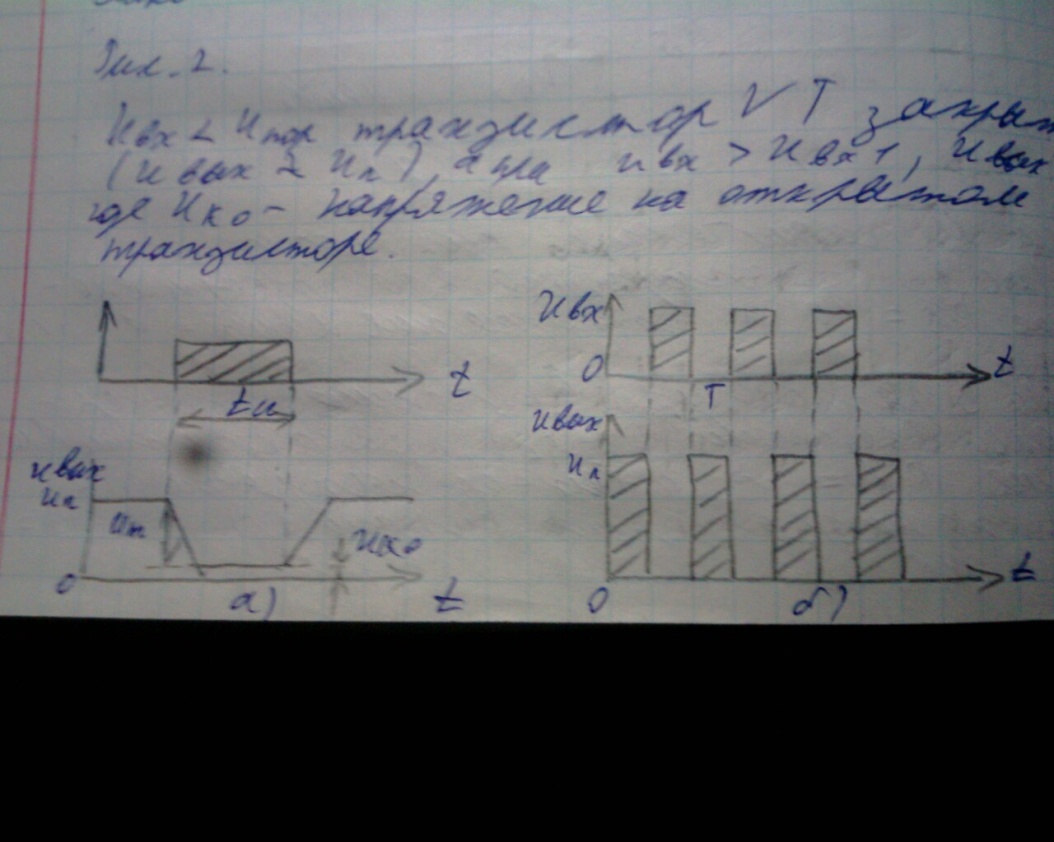 Рис. 2.
Uвх < Uпор транзистор VT закрыт
(Uвых ≈ Uп), а при Uвх > Uвх1, Uвых
где Uко - напряжение на открытом
транзисторе.
t
tи
Uвых
Uп
Um
Uко
0
t
а)
Uвх
0
t
T
Uвых
Uп
0
t
б)